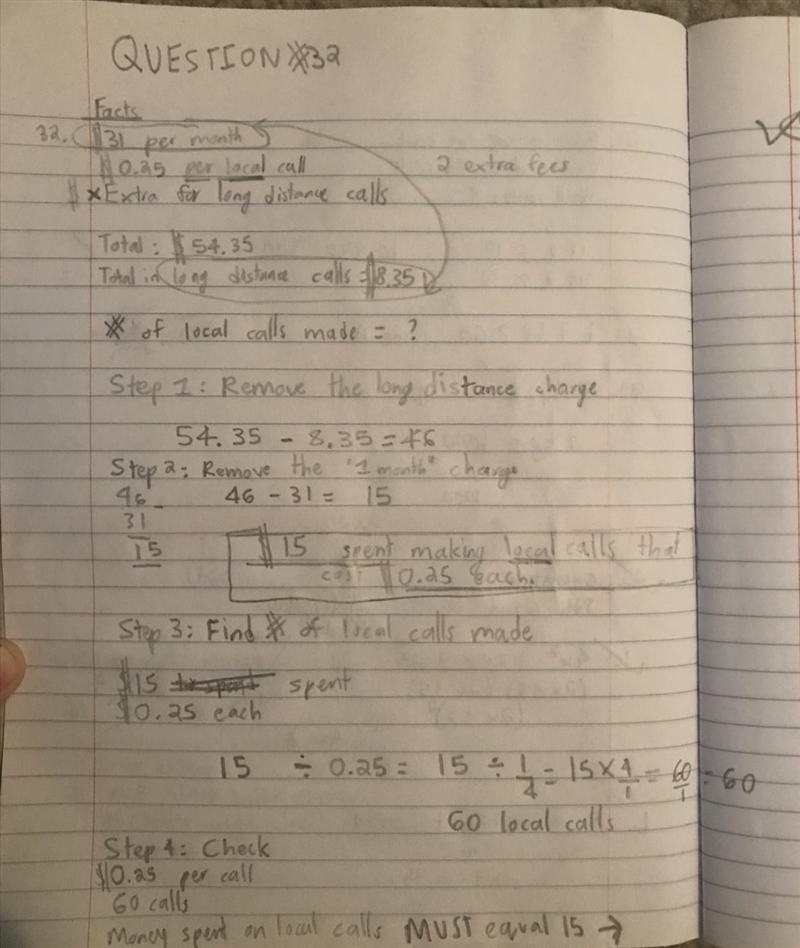 QUESTION #32
Facts
32. $31 per month
$0.25 per local call 2 extra fees
$ * Extra for long distance calls
Total: $54.35
Total in long distance calls = $8.35
# of local calls made = ?
Step 1: Remove the long distance charge
54.35 - 8.35 = 46
Step 2: Remove the "1 month" charge
46 - 46 - 31 = 15
31
15 $15 spent making local calls that
cost $0.25 each.
Step 3: Find # of local calls made
$15 spent
$0.25 each
15 ÷ 0.25 = 15 ÷ 1/4 = 15 × 4/1 = 60/1 = 60
60 local calls
Step 4: Check
$0.25 per call
60 calls
Money spent on local calls MUST equal 15 →